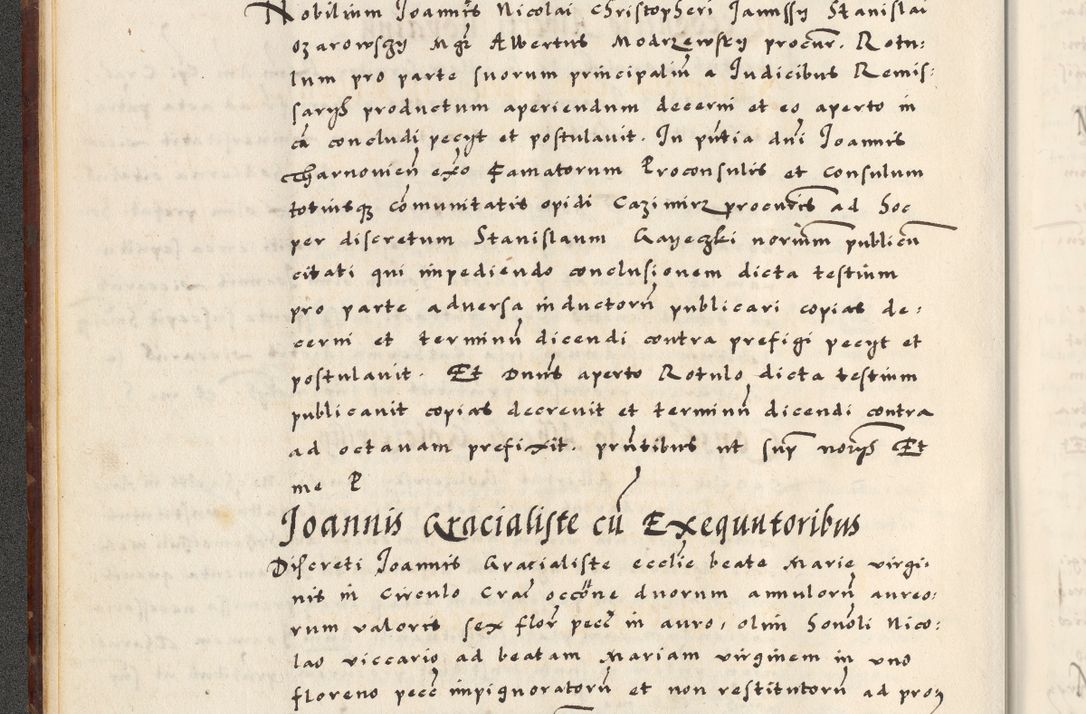 Nobilium Joannis Nicolai Christopheri Janussy Stanislai
ozarowszy Mgr̃ Albertus Modrzewsky procur̃. Rotu:
lum pro parte suorum principaliũ a Judicibus Remis:
sarijs productum aperiendum decerni et eo aperto in
cã concludi pecijt et postulavit. In pñtia dñi Joannis
Tharnovieñ exõ Famatorum Proconsulis et Consulum
totiusq̃ cõmunitatis opidi Cazimirz procuris ad hoc
per discretum Stanislaum Gayeczki noriũm publicũ
citati qui impediendo conclusionem dicta testium
pro parte adversa inductorũ publicari copias de:
cerni et terminũ dicendi contra prefigi pecijt et
postulavit. Et Dnus aperto Rotulo dicta testium
publicavit copias decrevit et terminũ dicendi contra
ad octavam prefixit. prñtibus ut sup̃ norijs Et
me P
Joannis Gracialiste cũ Exequutoribus
Discreti Joannis Gracialiste ecclie beate Marie virgi:
nis in Circulo Crac̃ occõne duorum annulorũ aureo:
rum valoris sex flor̃ pecc̃ in auro, olim honoli Nico:
lao viccario ad beatam Mariam virginem in uno
floreno pecc̃ impignoratorũ et non restitutorũ ad pro